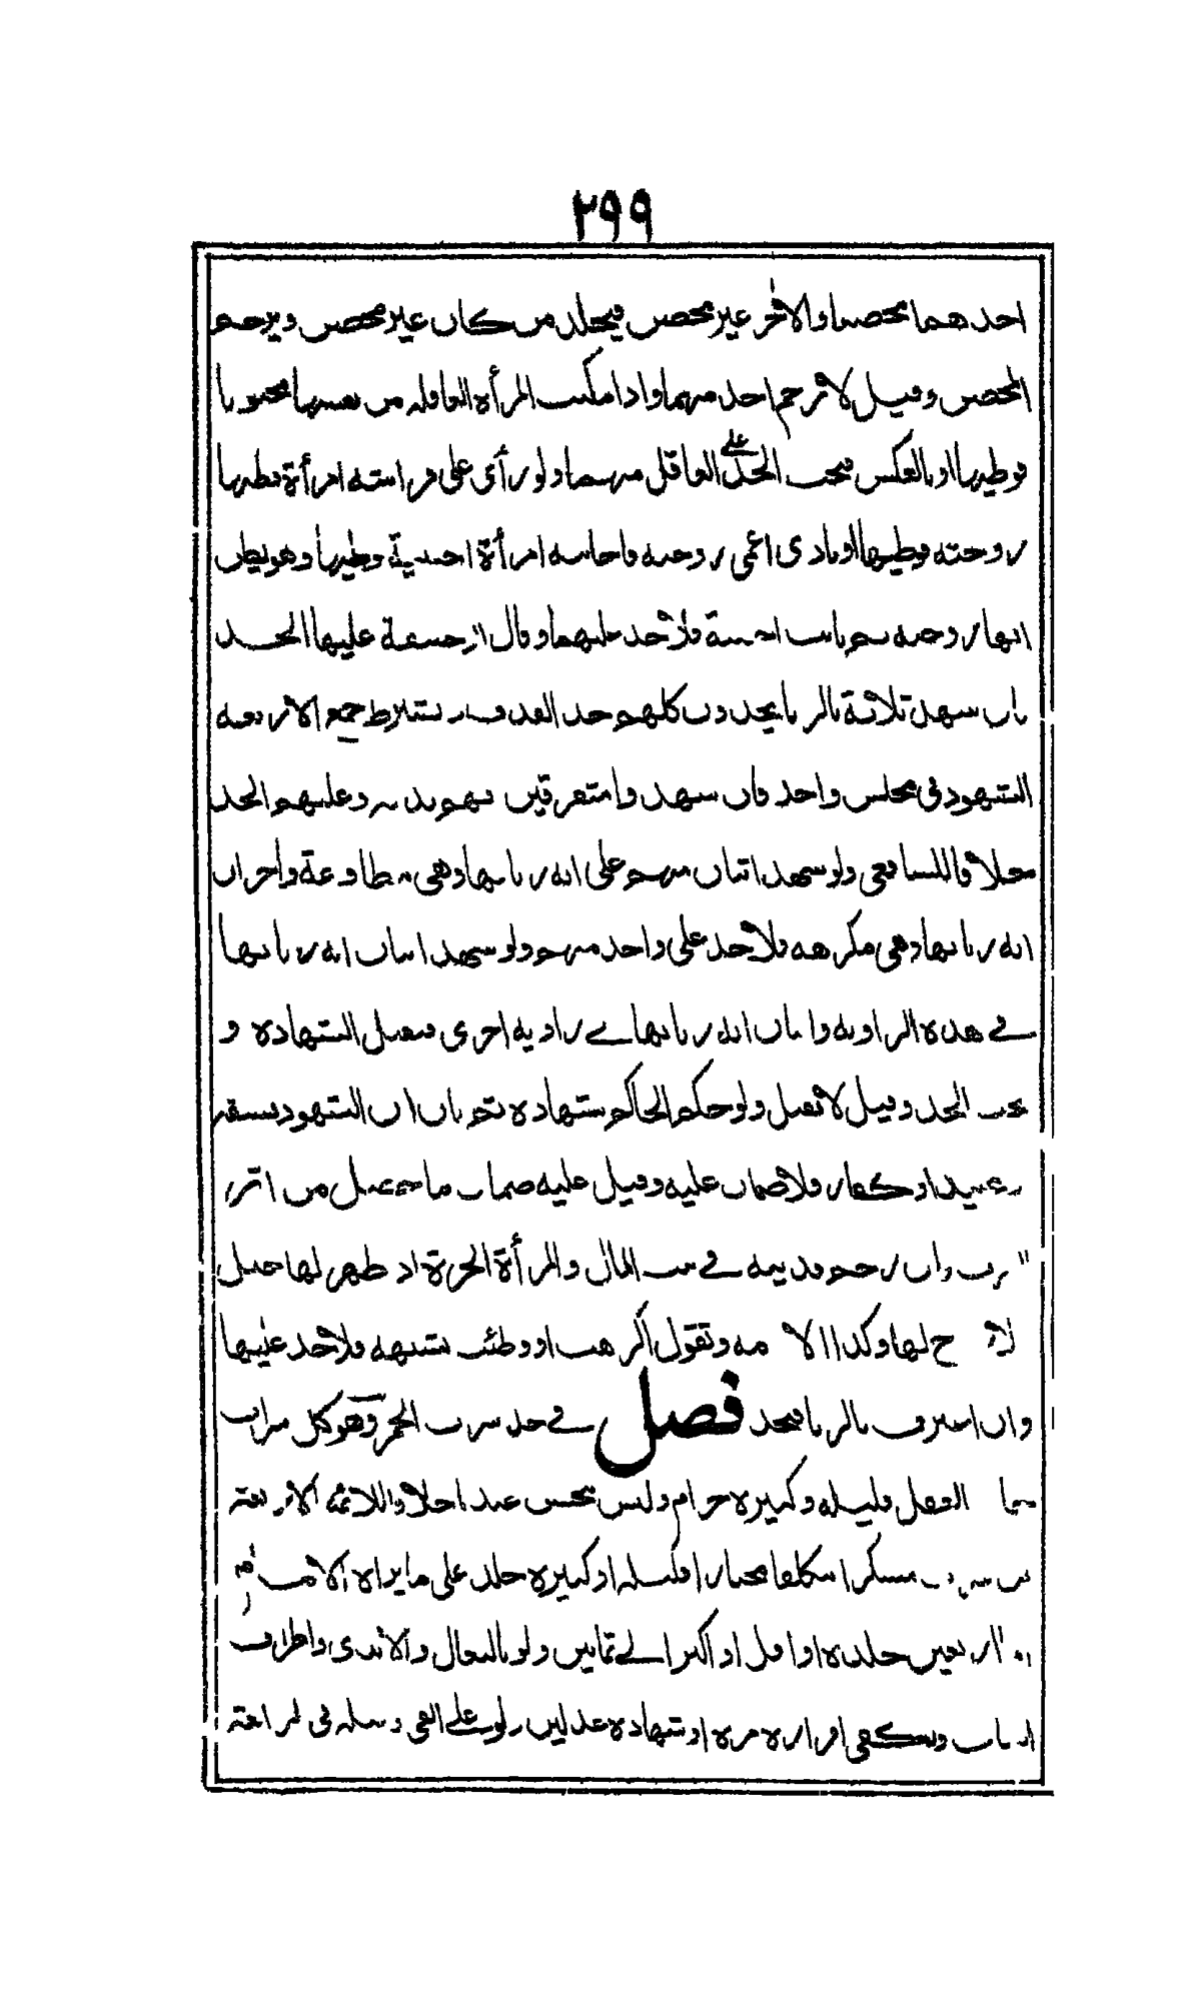 ٢٩٩
احدهما محصنا والاخر غير محصن فيجلد من كان غير محصن ويرجم
المحصن وقيل لا يرجم احد منهما واذا مكنت المرأة العاقلة من نفسها مجنونا
فوطيها او بالعكس فيجب الحد على العاقل منهما ولو رأى على فراشه امرأة فظنها
زوجته فوطيها او نادى اعمى زوجته فاجابته امرأة اجنبية وطيها وهو يظن
انها زوجته ثم بانت اجنبية فلا حد عليهما وقال ابو حنيفة عليها الحد
فان شهد ثلاثة بالزنا يحدون كلهم حد القذف ويشترط جميع الاربعة
الشهود في مجلس واحد فان شهدوا متفرقين فهم وعليهم الحد
خلافا للشافعي ولو شهد اثنان منهم على انه زنا بها وهي مطاوعة وآخران
انه زنا بها وهي مكرهة فلا حد على واحد منهم ولو شهد اثنان انه زنا بها
في هذه الزاوية واثنان انه زنا بها في زاوية اخرى فتقبل الشهادة و
يجب الحد وقيل لا تقبل ولو حكم الحاكم بشهادة ثم بان ان الشهود فسقة
عبيد او كفار فلا ضمان عليه وقيل عليه ضمان ما حصل من اثر
الضرب وان رجم فديته في بيت المال والمرأة الحرة اذ ظهر لها حبل
لا زوج لها وكذا الامة وتقول اكرهت او وطئت بشبهة فلا حد عليها
وان اعترفت بالزنا فتحد فصل في حد شرب الخمر وهو كل شراب
العقل قليله وكثيره حرام وليس بنجس عندنا خلافا للائمة الاربعة
من شرب مسكرا مكلفا مختارا قليله او كثيره جلد على ما يراه الامام
اربعين جلدة او اقل او اكثر الى ثمانين ولو بالنعال والايدي واطراف
الثياب ويكفي اقراره مرة او شهادة عدلين ولو على القي وسكره في رايحته